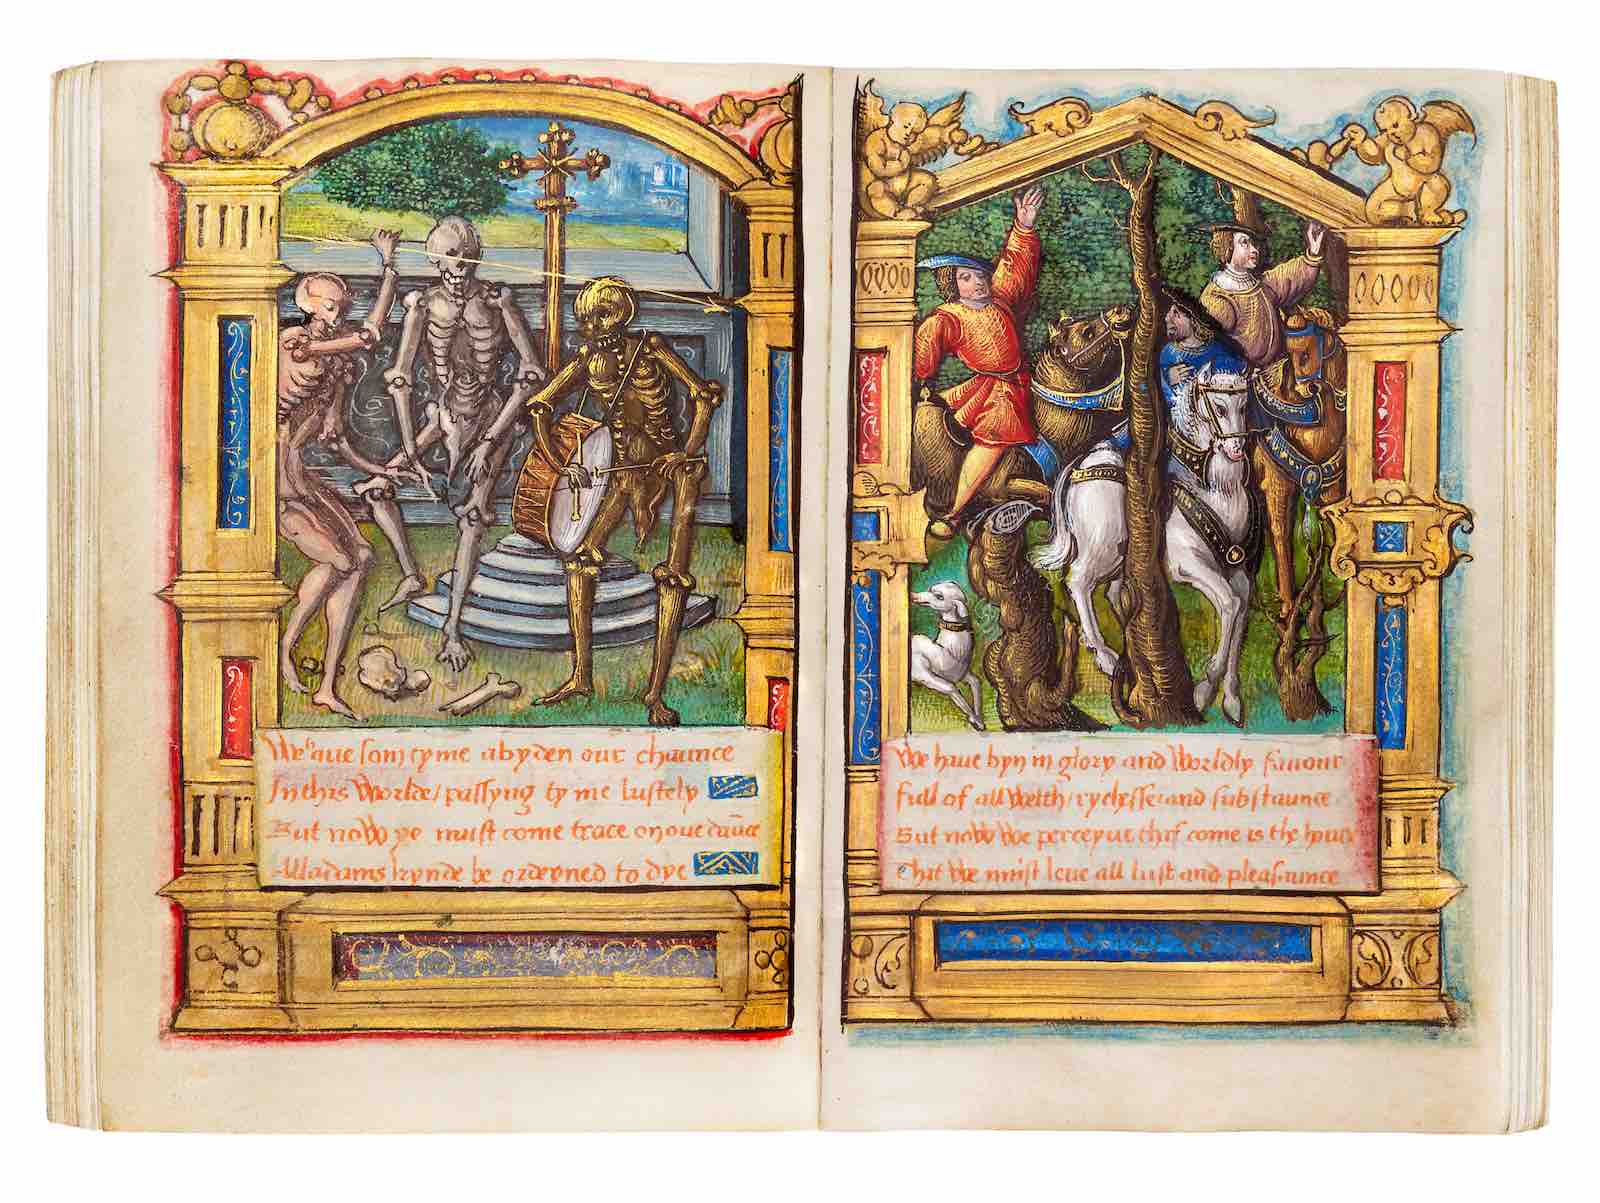 We haue somtyme abyden our chaunce
In this Worlde / passyng tyme lustely
But noW ye must come trace on oure daūce
All adams kynde be ordeyned to dye
We haue byn in glory and Worldly fauour
Full of all Welth / rychesse and substaunce
But noW We perceyue thꝭ come is the houre
That We must leue all lust and pleasaunce